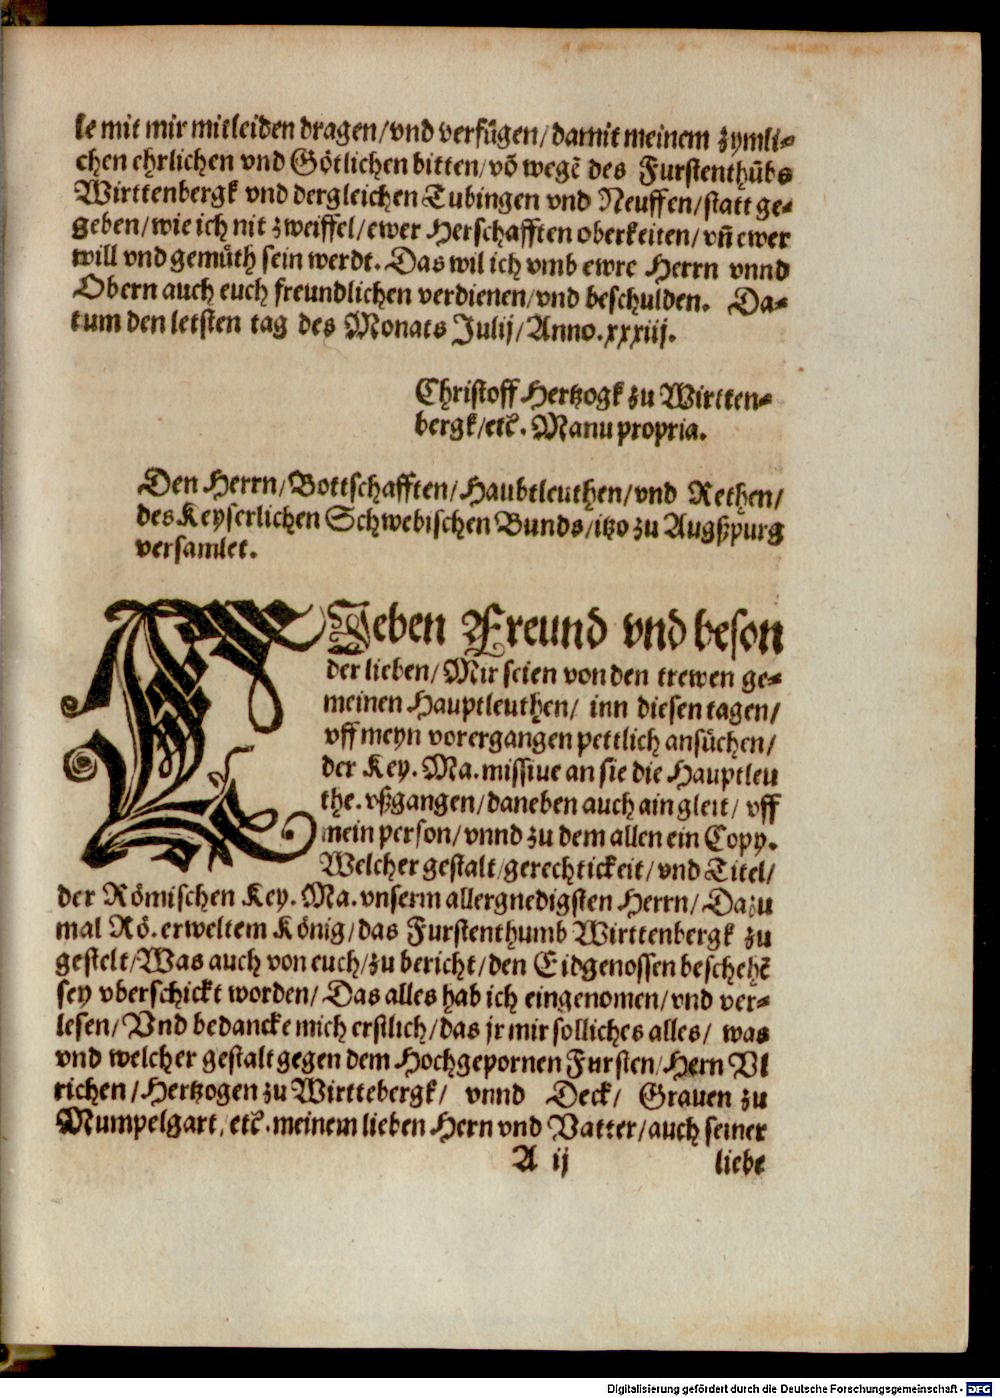 le mit mir mitleiden dragen/vnd verfügen/damit meinem zymli-
chen ehrlichen vnd Götlichen bitten/võ wegẽ des Furstenthũbs
Wirttenbergk vnd dergleichen Tubingen vnd Neuffen/statt ge-
geben/wie ich nit zweiffel/ewer Herschafften oberkeiten/vñ ewer
will vnd gemüth sein werdt. Das wil ich vmb ewre Herrn vnnd
Obern auch euch freundlichen verdienen/vnd beschulden. Da-
tum den letsten tag des Monats Julij/Anno.xxxiij.
Christoff Hertzogk zu Wirtten-
bergk/etc. Manu propria.
Den Herrn/Bottschafften/Haubtleuthen/vnd Rethen/
des Keyserlichen Schwebischen Bunds/itzo zu Augßpurg
versamlet.
LIeben Freund vnd beson
der lieben/Mir seien von den trewen ge-
meinen Hauptleuthen/ inn diesen tagen/
vff meyn vorergangen pettlich ansüchen/
der Key. Ma. missiue an sie die Hauptleu
the. vßgangen/daneben auch ain gleit/ vff
mein person/vnnd zu dem allen ein Copy.
Welcher gestalt/gerechtickeit/vnd Titel/
der Römischen Key. Ma. vnserm allergnedigsten Herrn/Dazu
mal Rö. erweltem König/das Furstenthumb Wirttenbergk zu
gestelt/Was auch von euch/zu bericht/den Eidgenossen beschehẽ
sey vberschickt worden/Das alles hab ich eingenomen/vnd ver-
lesen/Vnd bedancke mich erstlich/das jr mir solliches alles/ was
vnd welcher gestalt gegen dem Hochgepornen Fursten/Hern Vl
richen/Hertzogen zu Wirttebergk/ vnnd Deck/ Grauen zu
Mumpelgart/etc. meinem lieben Hern vnd Vatter/auch seiner
A ij liebe
Digitalisierung gefördert durch die Deutsche Forschungsgemeinschaft - DFG